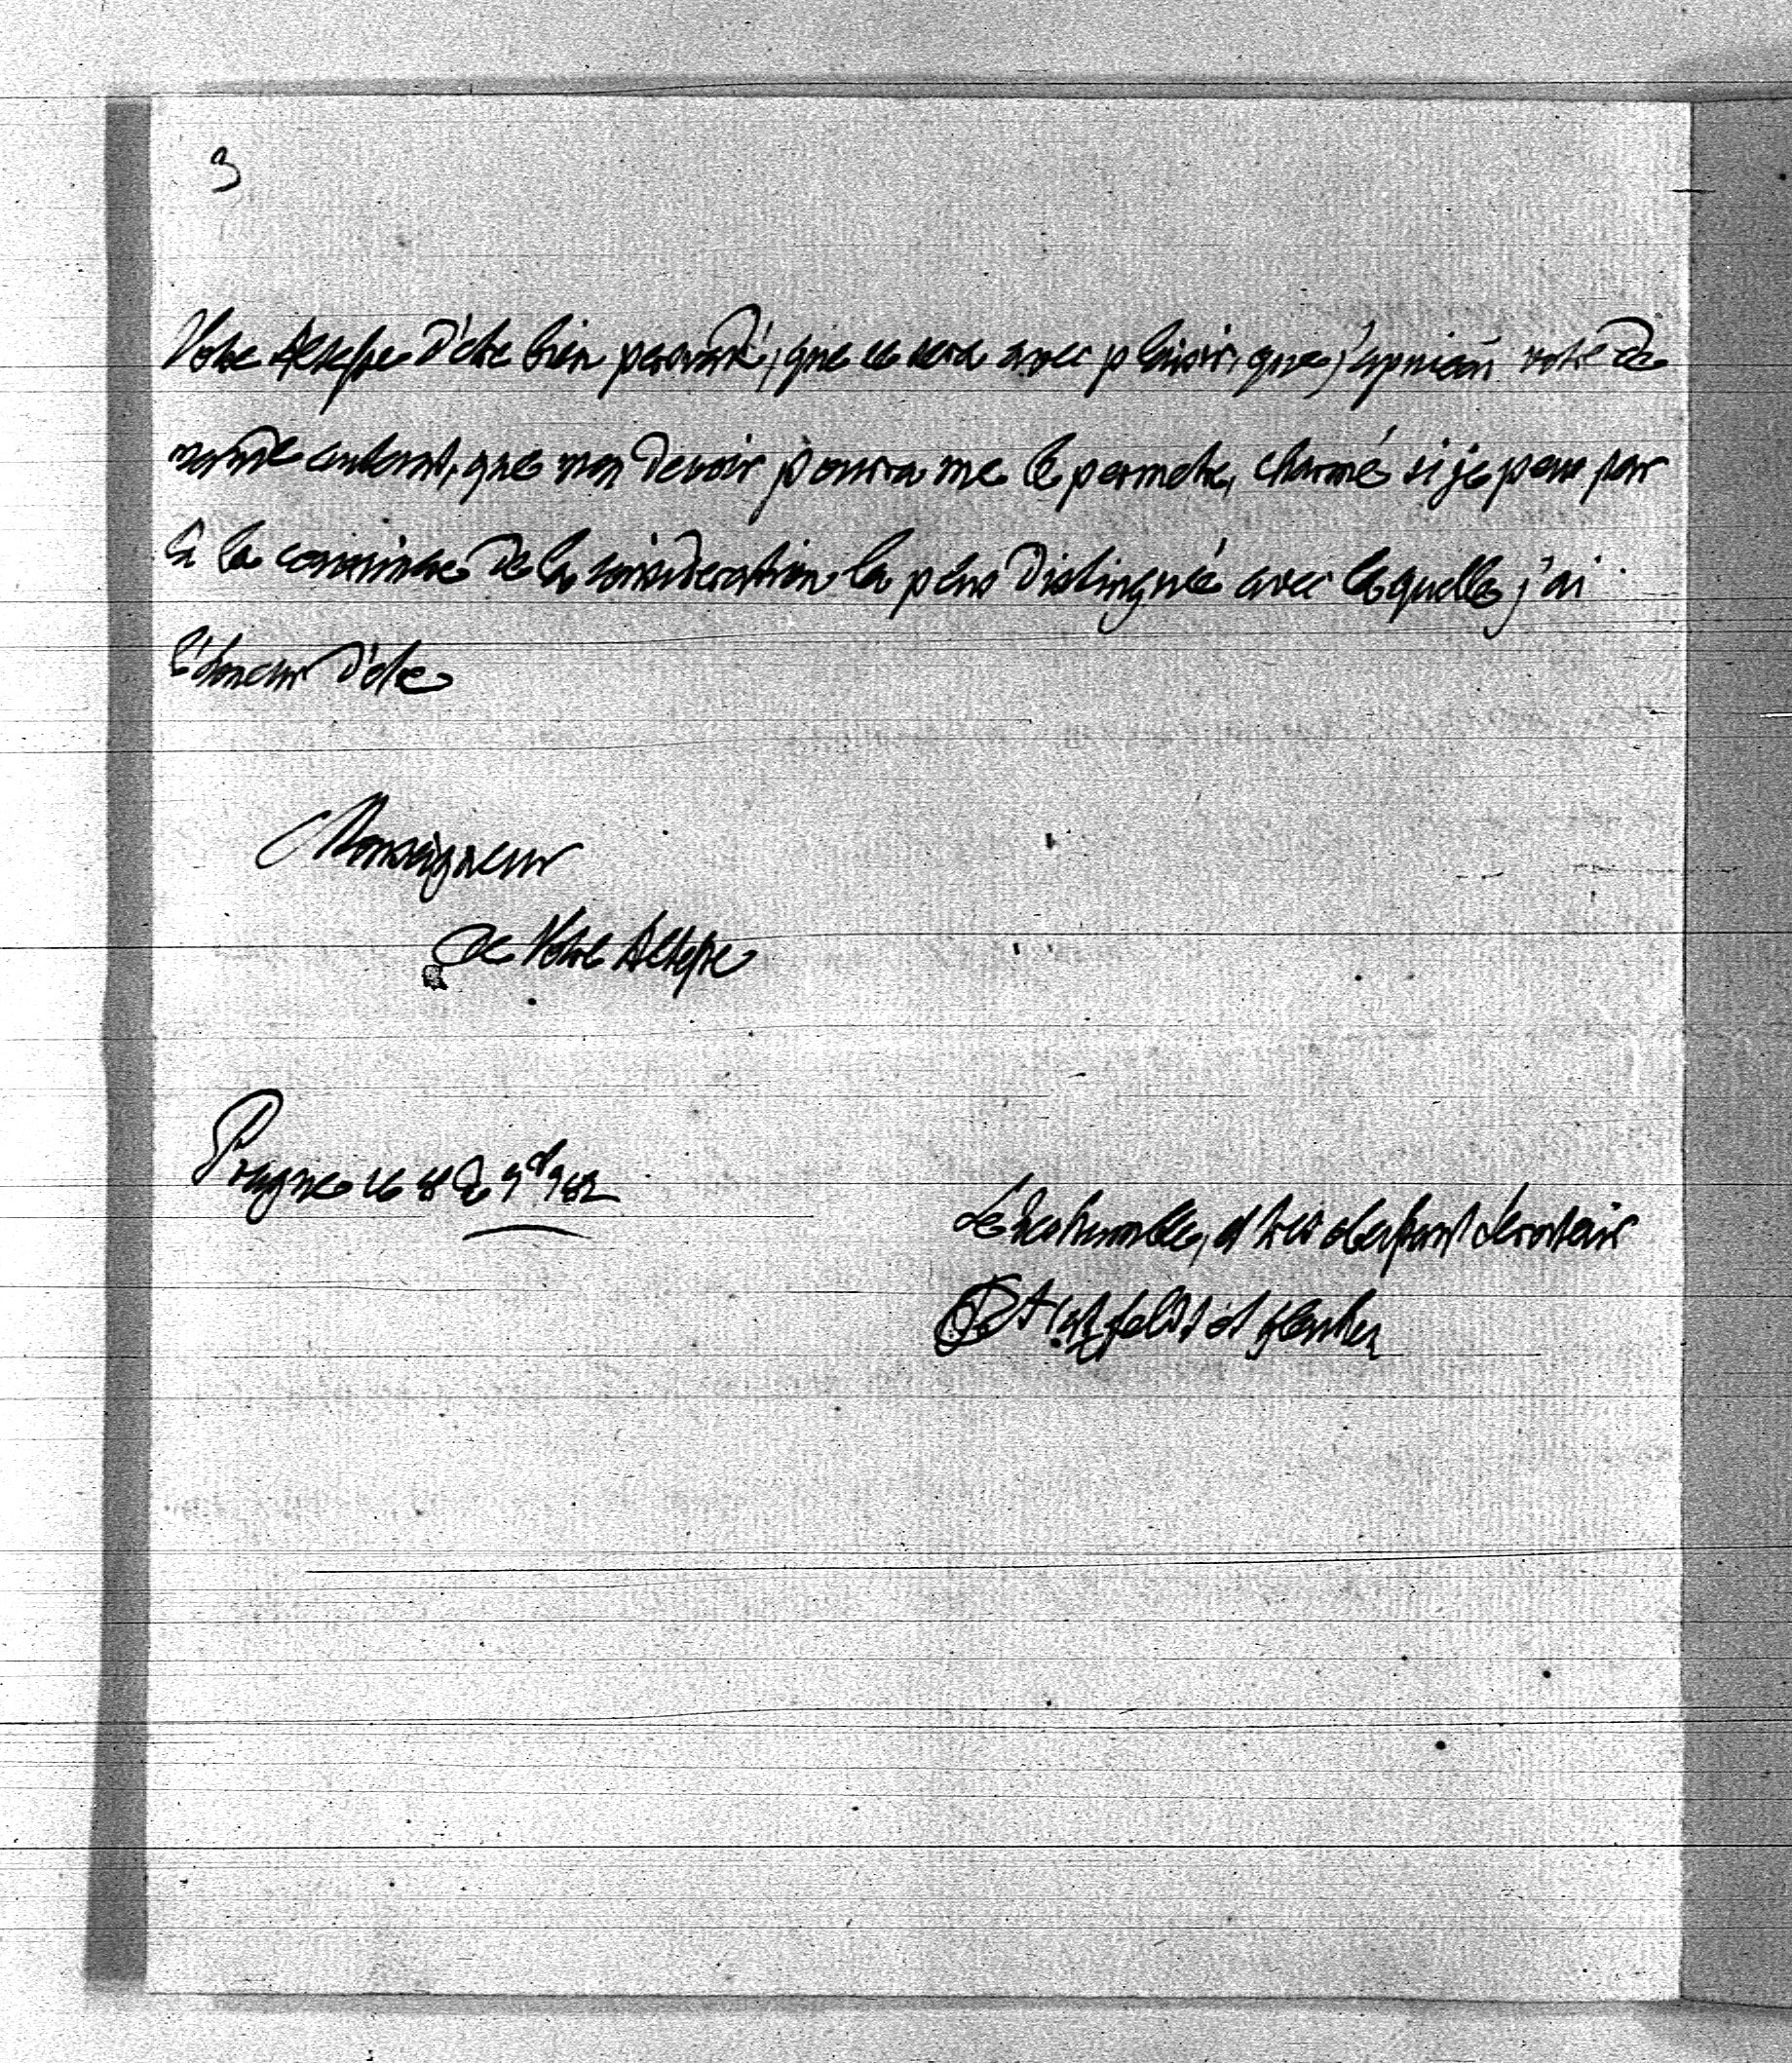 3
Votre Altesse d'être bien persuadé, que ce sera avec plaisir, que j'apuieai votre de
mande autant, que mon devoir pourra me le permetre, charmé si je peux par
là la convaincre de la consideration la plus distinguée avec laquelle j'ai
l'honeur d'etre
Monseigneur
de Votre Altesse
Prague le 8 de
Le tres humble, et tres obeissant Serviteur